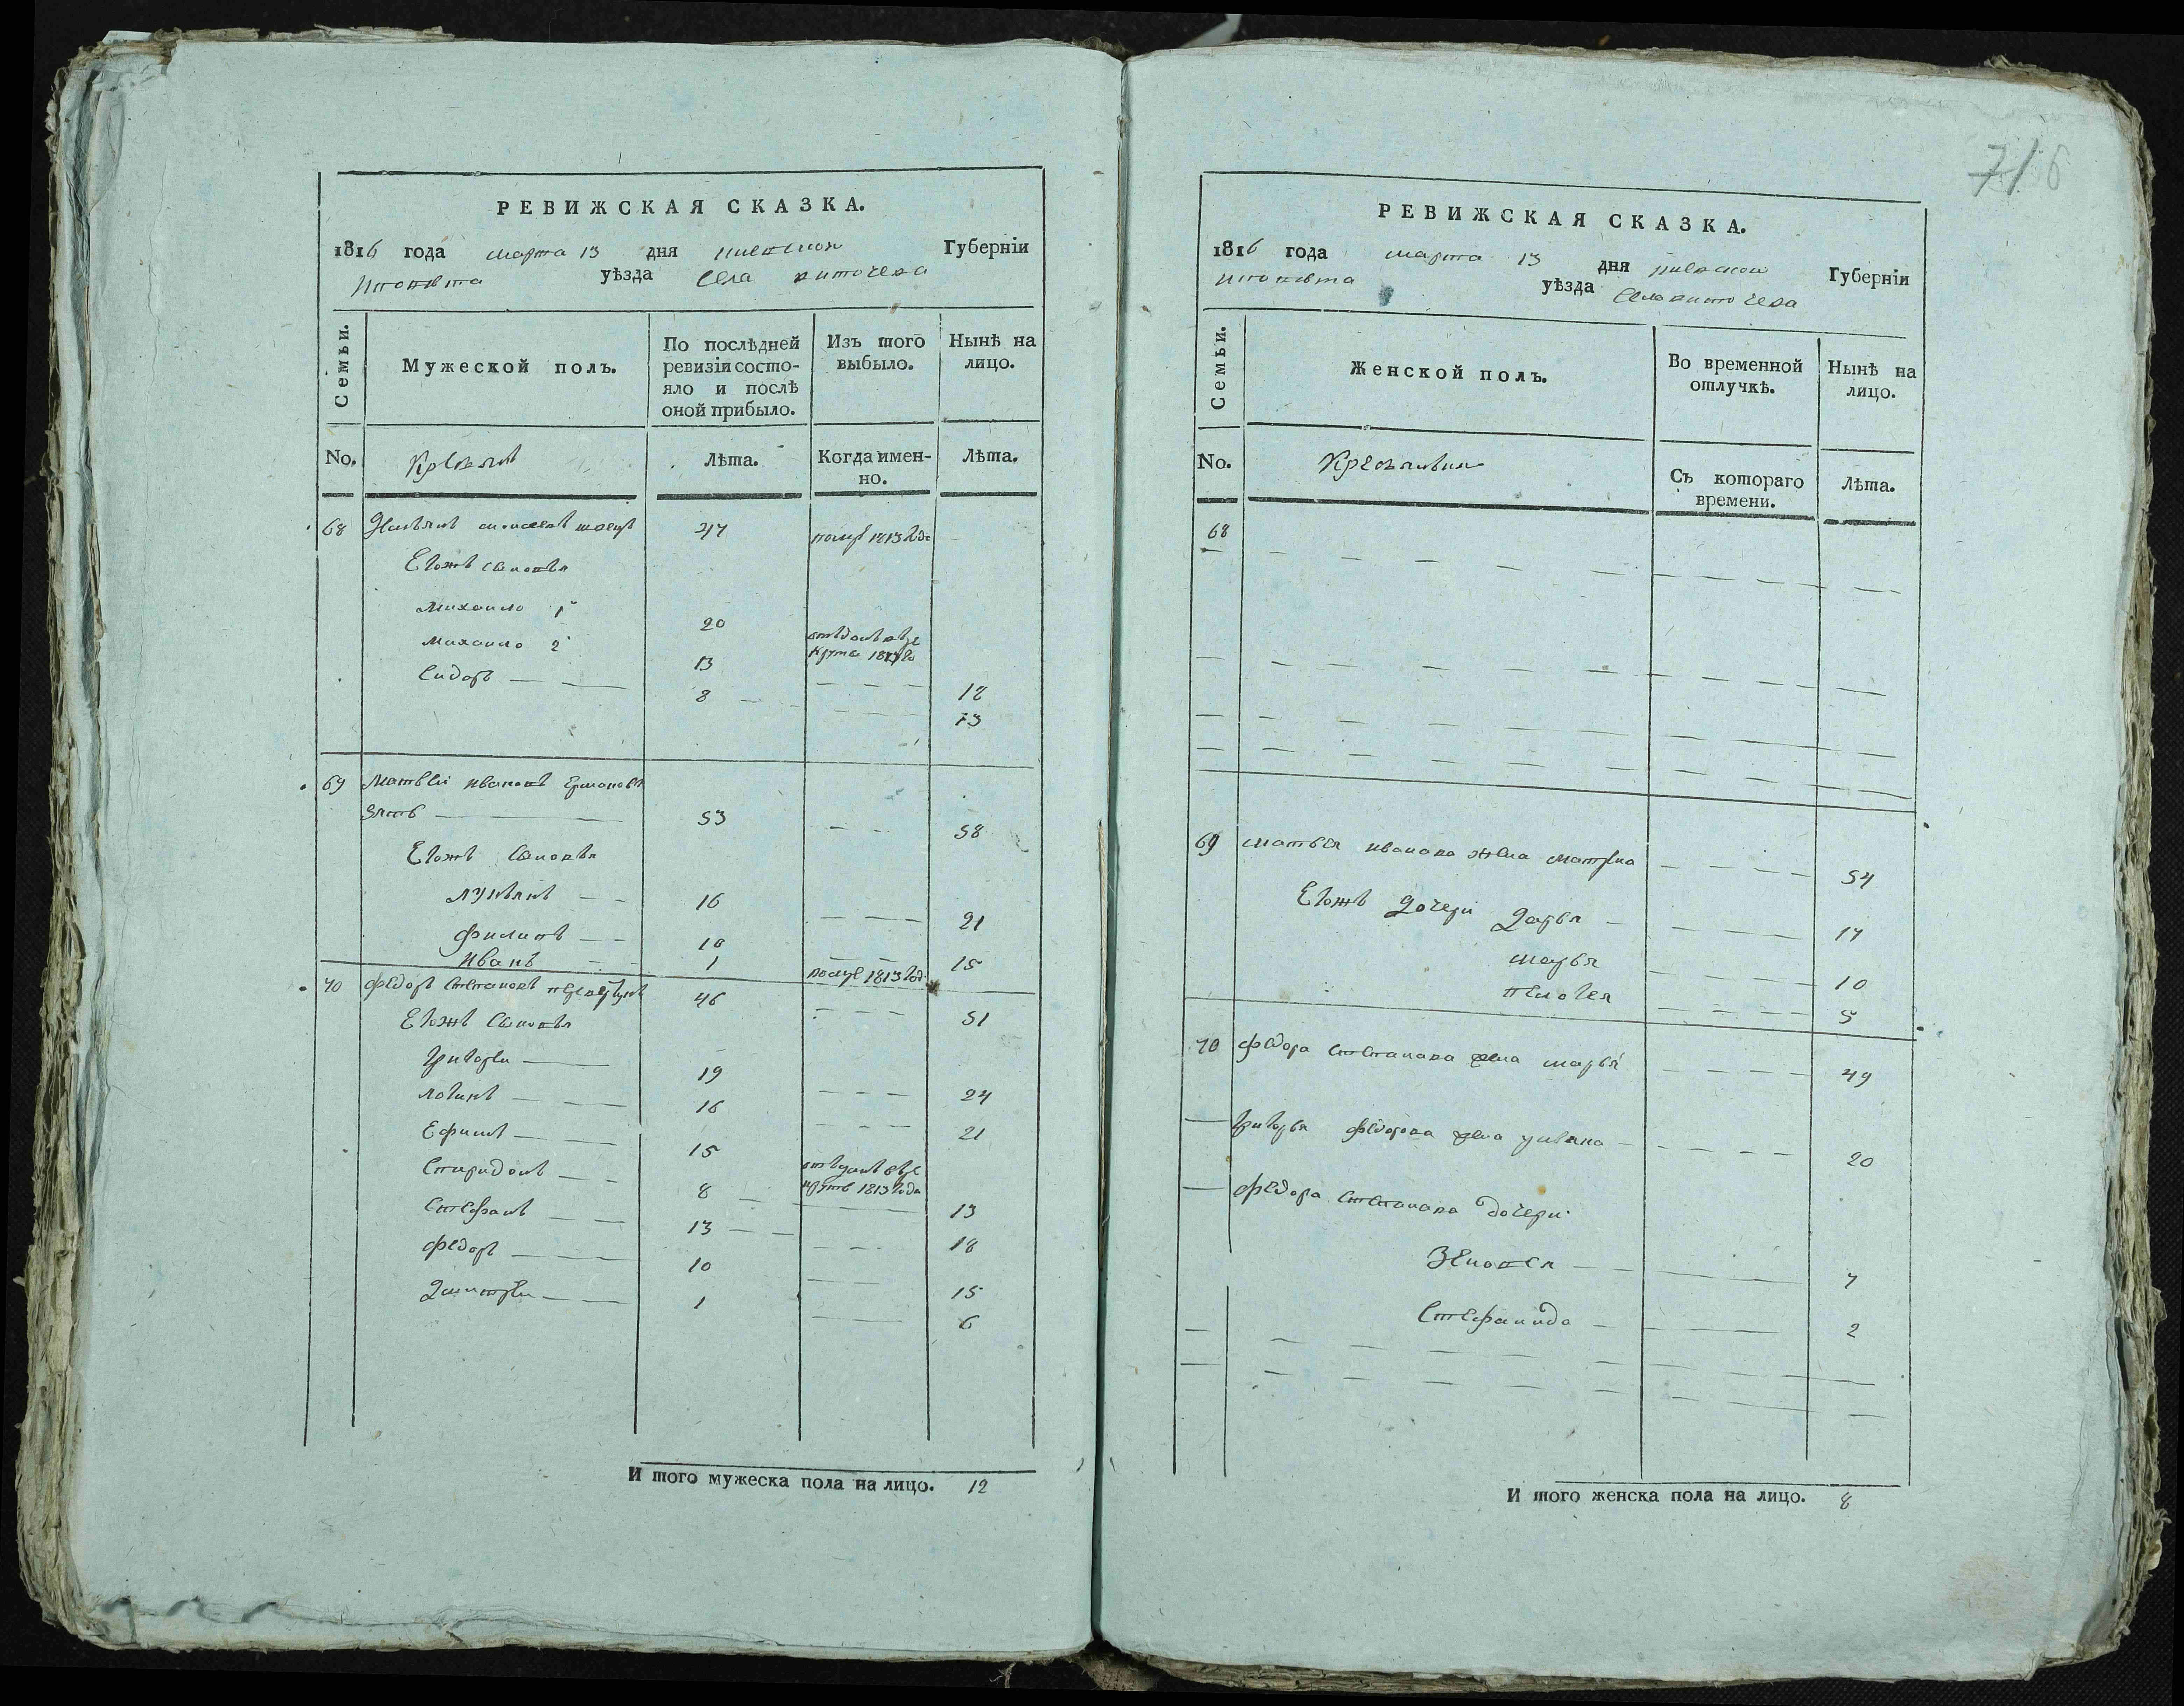 716
РЕВИЖСКАЯ СКАЗКА.
1816 года марта 13 дня киевской Губерніи
уѣзда села
Семьи.
Мужеской полъ.
По послѣдней ревизіи состояло и послѣ оной прибыло.
Изъ того выбыло.
Нынѣ на лицо.
No.
Лѣта.
Когда имен-
но.
Лѣта.
68 47 1813
Егожъ сыновья
Михаило 1й 20 отъданъ въ ре
круты 1813 го
Михаило 2й 13 18
Сидоръ 8 13
69 Матвеи Ивановъ
зять 53 58
Егожъ сыновья
Лукьянъ 16 21
Филипъ 10 15
Иванъ 1 1813 год
70 Федоръ Степановъ 46 51
Егожъ сыновья
Григореи 19 24
Логинъ 16 21
Ефимъ 15 отъданъ въ ре
круты 1813 года
Спиридонъ 8 13
Стефанъ 13 18
Федоръ 10 15
Дмитреи 1 6
И того мужеска пола на лицо. 12
РЕВИЖСКАЯ СКАЗКА.
1816 года марта 13 дня киевской Губерніи
уѣзда села
Семьи.
Женской полъ.
Во временной отлучкѣ.
Нынѣ на лицо.
No.
Съ котораго
времени.
Лѣта.
68
69 Матвея Иванова жена Матрена 54
Егожъ дочери Дарья 17
Марья 10
Пелогея 5
70 Федора Степанова жена Марья 49
Григорья Федорова жена Ульяна 20
Федора Степанова дочери
Зеновея 7
Стефанида 2
И того женска пола на лицо. 8